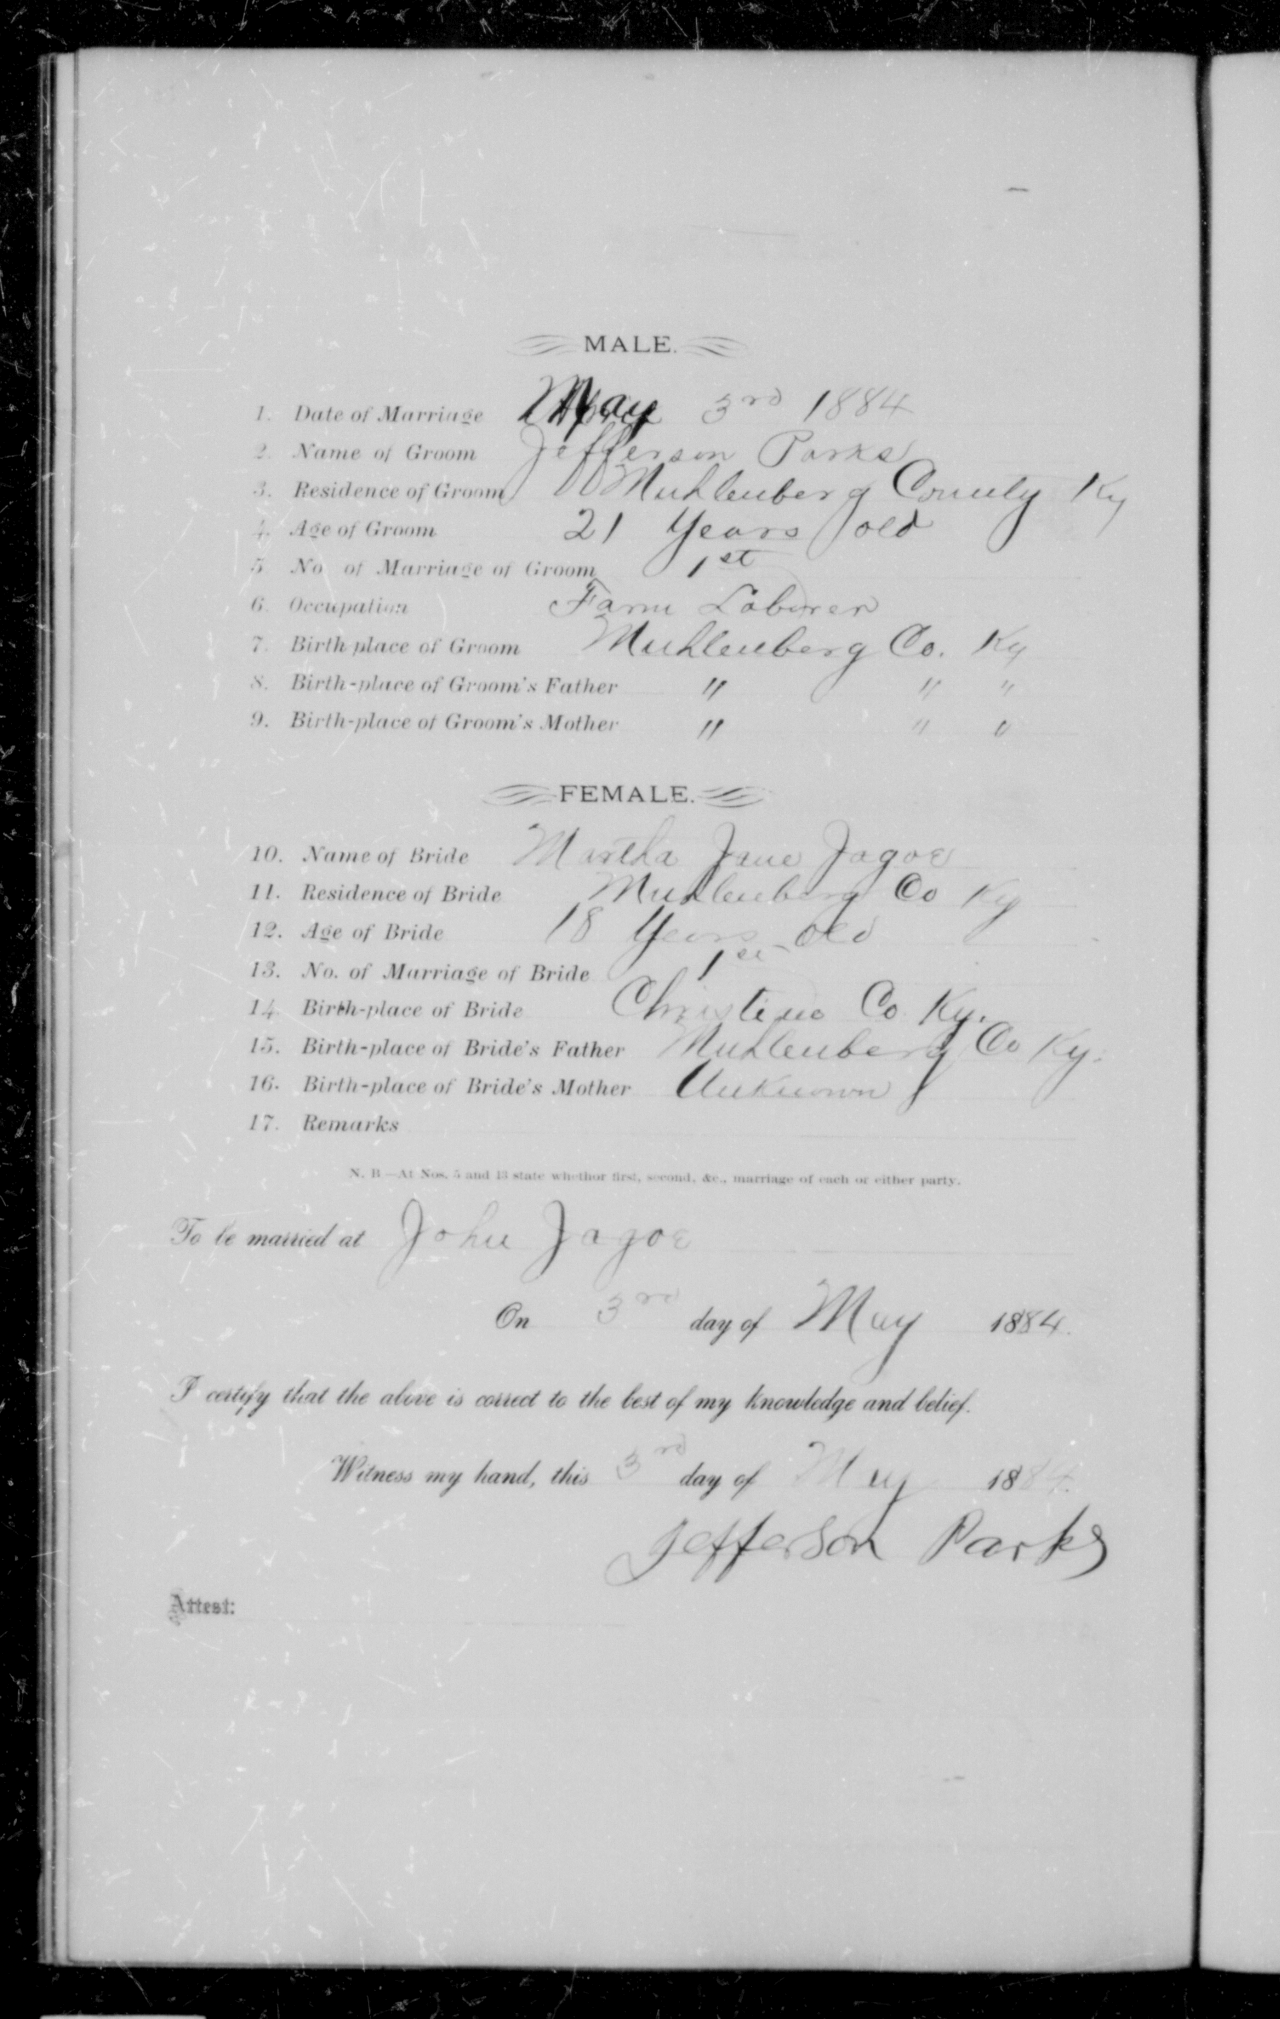 MALE.
1. Date of Marriage May 3rd 1884
2. Name of Groom Jefferson Parks
3. Residence of Groom Muhlenberg County Ky
4. Age of Groom 21 Years old
5. No. of Marriage of Groom 1st
6. Occupation Farm Laborer
7. Birth-place of Groom Muhlenberg Co. Ky
8. Birth-place of Groom's Father " " "
9. Birth-place of Groom's Mother " " "
FEMALE.
10. Name of Bride Martha Jane Jagoe
11. Residence of Bride Muhlenberg Co Ky
12. Age of Bride 18 Years old
13. No. of Marriage of Bride 1st
14. Birth-place of Bride Co Ky.
15. Birth-place of Bride's Father Muhlenberg Co Ky.
16. Birth-place of Bride's Mother Unknown
17. Remarks
N. B.—At Nos. 5 and 13 state whether first, second, &c., marriage of each or either party.
To be married at John Jagoe
On 3rd day of May 1884.
I certify that the above is correct to the best of my knowledge and belief.
Witness my hand, this 3rd day of May 1884.
Jefferson Parks
Attest: